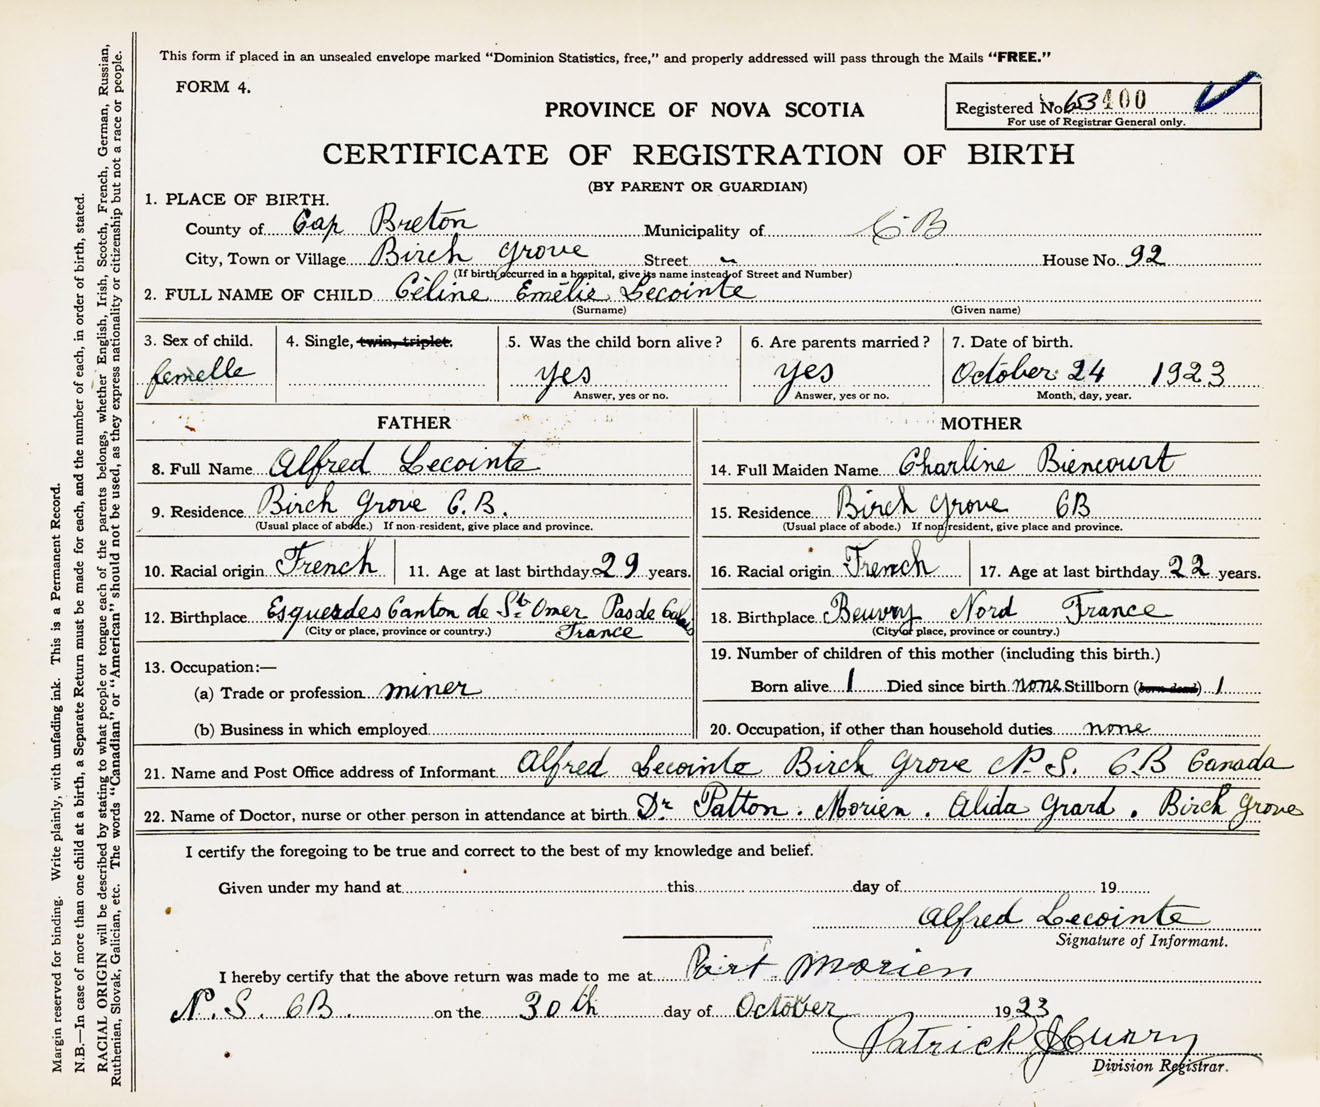 This form if placed in an unsealed envelope marked “Dominion Statistics, free,” and properly addressed will pass through the Mails “FREE.”
FORM 4.
Registered No. 653400
For use of Registrar General only.
PROVINCE OF NOVA SCOTIA
CERTIFICATE OF REGISTRATION OF BIRTH
(BY PARENT OR GUARDIAN)
1. PLACE OF BIRTH.
County of Cap Breton Municipality of C B
City, Town or Village Birch Grove Street ~ House No. 92
(If birth occurred in a hospital, give its name instead of Street and Number)
2. FULL NAME OF CHILD Céline Emélie Lecointe
(Surname) (Given name)
3. Sex of child. 4. Single, twin, triplet. 5. Was the child born alive? 6. Are parents married? 7. Date of birth.
femelle yes yes October 24 1923
Answer, yes or no. Answer, yes or no. Month, day, year.
FATHER MOTHER
8. Full Name Alfred Lecointe 14. Full Maiden Name Charline Biencourt
9. Residence Birch Grove C.B. 15. Residence Birch Grove CB
(Usual place of abode.) If non-resident, give place and province. (Usual place of abode.) If non-resident, give place and province.
10. Racial origin French 11. Age at last birthday 29 years. 16. Racial origin French 17. Age at last birthday 22 years.
12. Birthplace Esquerdes Canton de St Omer Pas de Calais 18. Birthplace Beuvry Nord France
(City or place, province or country.) France (City or place, province or country.)
13. Occupation:— 19. Number of children of this mother (including this birth.)
(a) Trade or profession miner Born alive 1 Died since birth none Stillborn (born dead) 1
(b) Business in which employed 20. Occupation, if other than household duties none
21. Name and Post Office address of Informant Alfred Lecointe Birch Grove N.S. C.B Canada
22. Name of Doctor, nurse or other person in attendance at birth Dr Patton. Morien. Alida Grard. Birch Grove
I certify the foregoing to be true and correct to the best of my knowledge and belief.
Given under my hand at this day of 19
Alfred Lecointe
Signature of Informant.
I hereby certify that the above return was made to me at Port Morien
N.S. CB. on the 30th day of October 1923
Patrick J Curry
Division Registrar.
Margin reserved for binding. Write plainly, with unfading ink. This is a Permanent Record.
N.B.—In case of more than one child at a birth, a Separate Return must be made for each, and the number of each, in order of birth, stated.
RACIAL ORIGIN will be described by stating to what people or tongue each of the parents belongs, whether English, Irish, Scotch, French, German, Russian,
Ruthenian, Slovak, Galician, etc. The words “Canadian” or “American” should not be used, as they express nationality or citizenship but not a race or people.